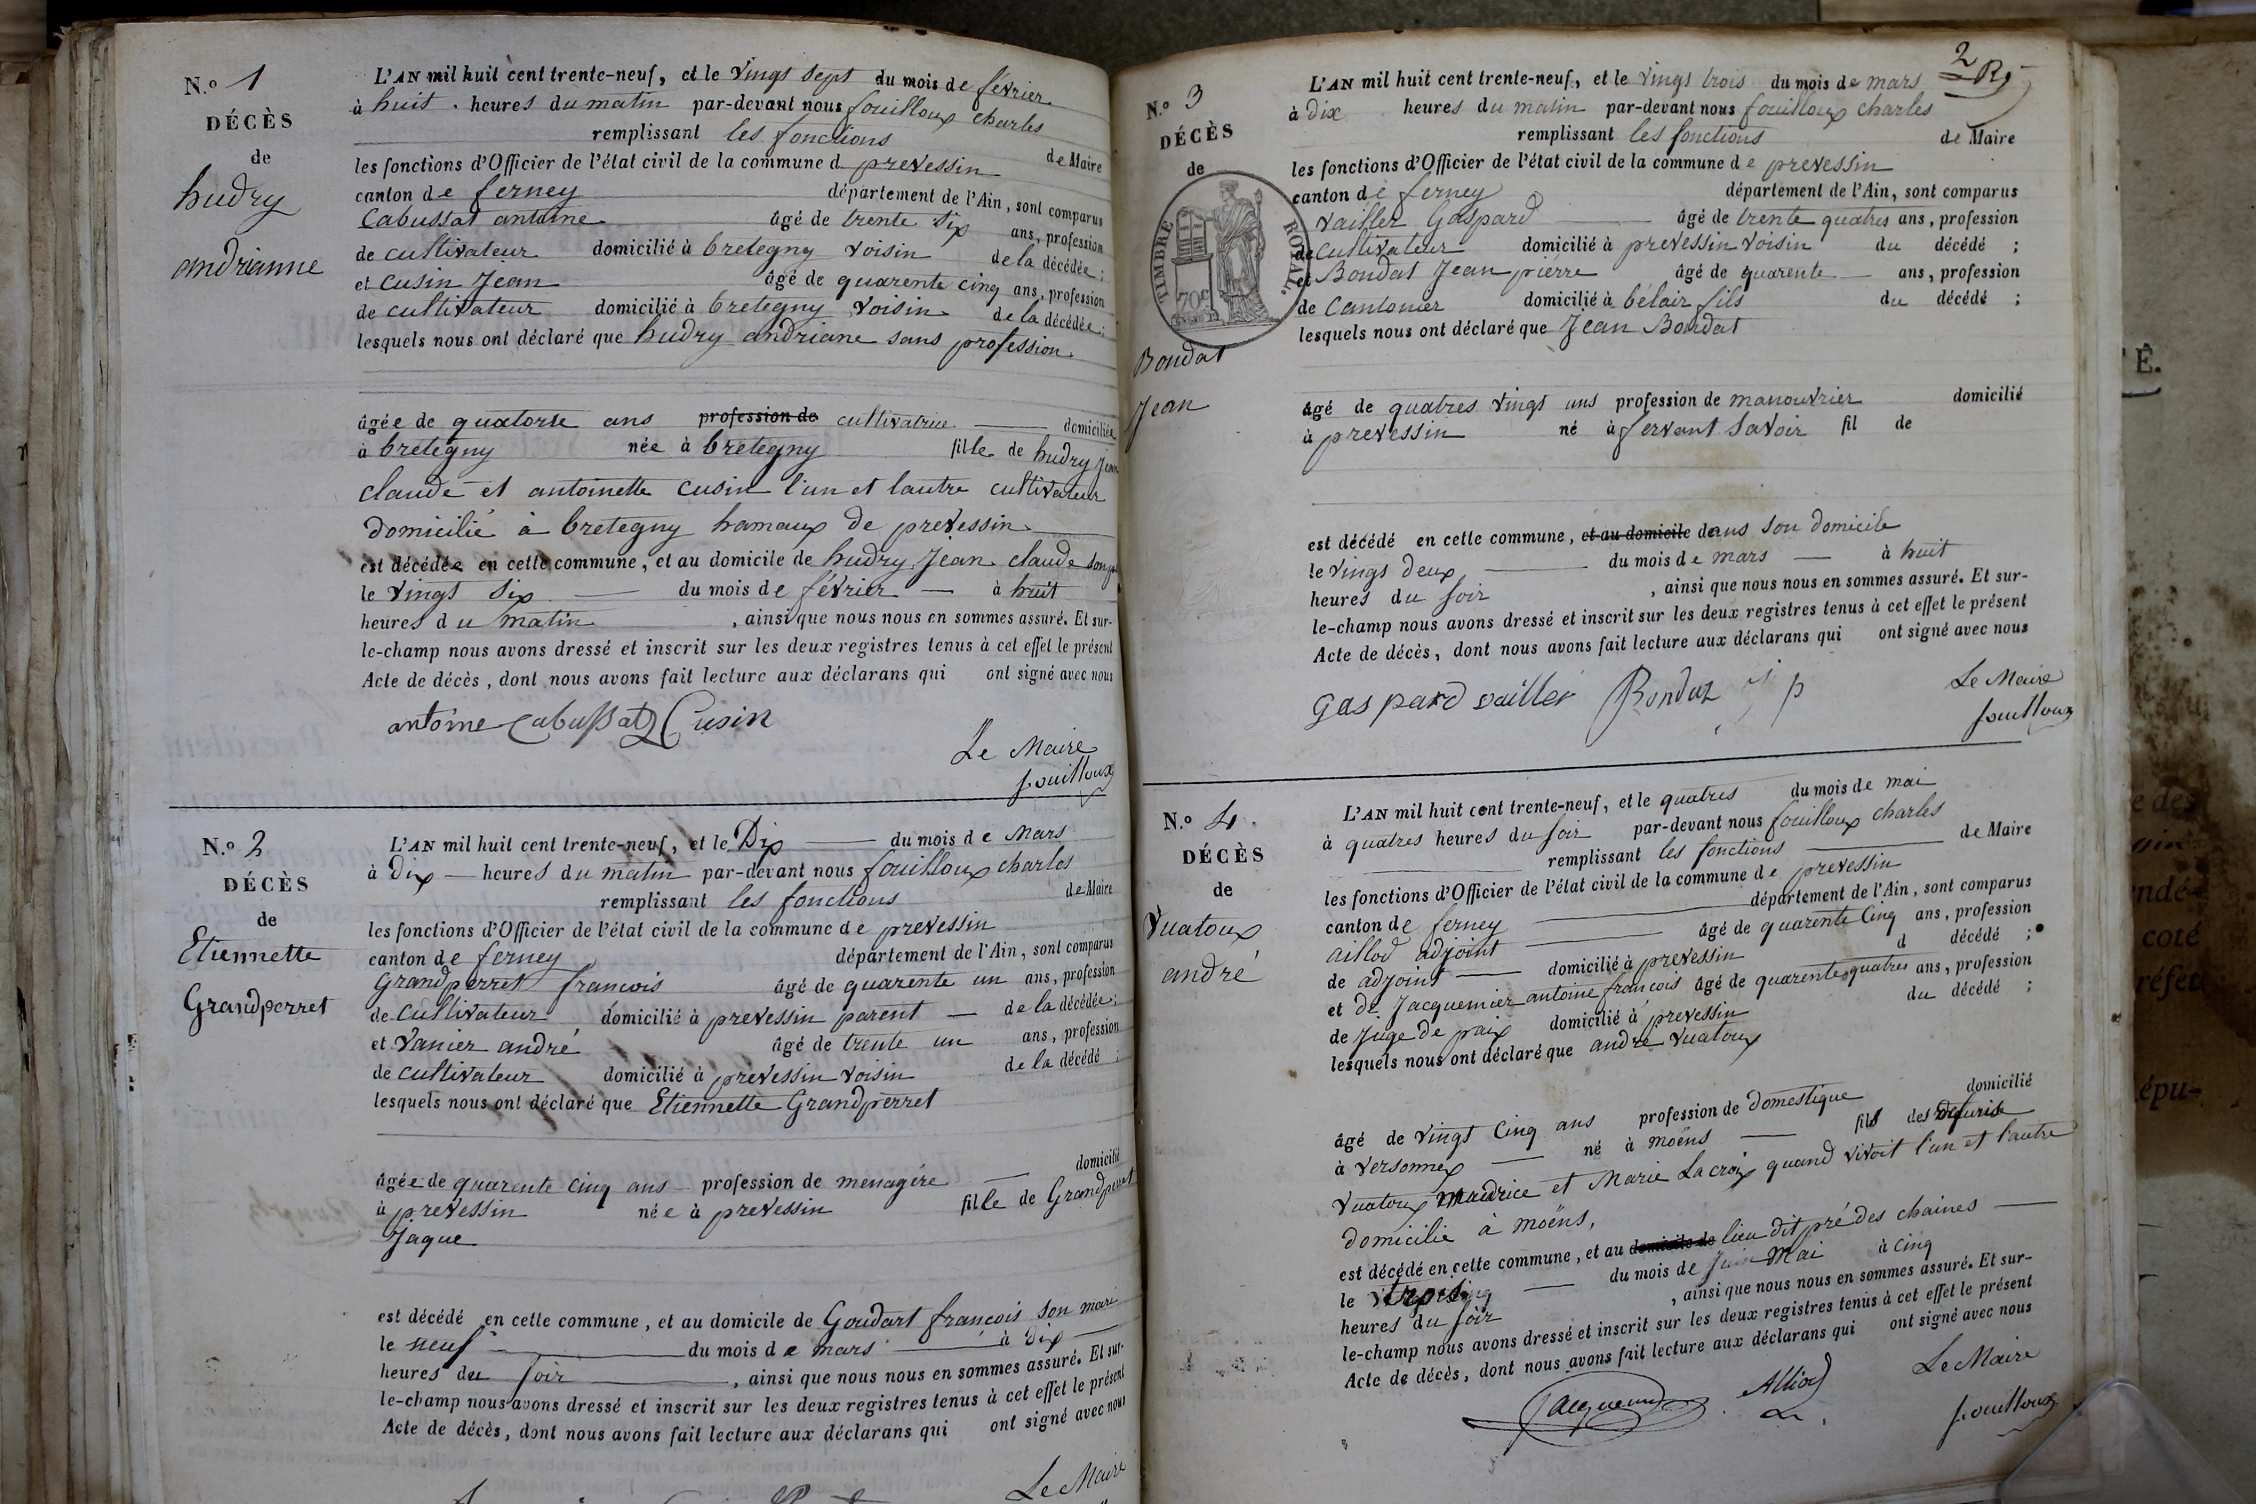 N.o 1
DÉCÈS
de
hudry
andrianne
L'AN mil huit cent trente-neuf, et le vingt sept du mois de février
à huit heures du matin par-devant nous fouilloux charles
remplissant les fonctions de Maire
les fonctions d'Officier de l'état civil de la commune d prevessin
canton de ferney département de l'Ain, sont comparus
Cabussat antoine âgé de trente six ans, profession
de cultivateur domicilié à bretegny voisin de la décédée;
et cusin Jean âgé de quarente cinq ans, profession
de cultivateur domicilié à bretegny voisin de la décédée;
lesquels nous ont déclaré que hudry andriane sans profession
âgée de quatorse ans profession de cultivatrice domiciliée
à bretegny née à bretegny fille de hudry Jean
claude et antoinette cusin l'un et lautre cultivateur
domicilié à bretegny hamaux de prevessin
est décédée en cette commune, et au domicile de hudry Jean claude son
le vingt six du mois de février à huit
heures du matin, ainsi que nous nous en sommes assuré. Et sur-
le-champ nous avons dressé et inscrit sur les deux registres tenus à cet effet le présent
Acte de décès, dont nous avons fait lecture aux déclarans qui ont signé avec nous
antoine Cabussat Cusin
Le Maire
fouilloux
N.o 2
DÉCÈS
de
Etiennette
Grandperret
L'AN mil huit cent trente-neuf, et le Dix du mois de Mars
à Dix heures du matin par-devant nous fouilloux charles
remplissant les fonctions de Maire
les fonctions d'Officier de l'état civil de la commune de prevessin
canton de ferney département de l'Ain, sont comparus
Grandperret francois âgé de quarente un ans, profession
de Cultivateur domicilié à prevessin parent de la décédée;
et Vanier andré âgé de trente un ans, profession
de cultivateur domicilié à prevessin voisin de la décédé;
lesquels nous ont déclaré que Etiennette Grandperret
âgée de quarente cinq ans profession de menagére domicilié
à prevessin née à prevessin fille de Grandperret
Jaque
est décédé en cette commune, et au domicile de Goudart francois son mari
le neuf du mois de mars à Dix
heures du soir, ainsi que nous nous en sommes assuré. Et sur-
le-champ nous avons dressé et inscrit sur les deux registres tenus à cet effet le présent
Acte de décès, dont nous avons fait lecture aux déclarans qui ont signé avec nous
Le Maire
2
N.o 3
DÉCÈS
de
TIMBRE ROYAL.
70c
Bondat
Jean
L'AN mil huit cent trente-neuf, et le vingt trois du mois de mars
à dix heures du matin par-devant nous fouilloux charles
remplissant les fonctions de Maire
les fonctions d'Officier de l'état civil de la commune de prevessin
canton de ferney département de l'Ain, sont comparus
vailler Gaspard âgé de trente quatres ans, profession
de cultivateur domicilié à prevessin voisin du décédé;
et Bondat Jean piérre âgé de quarente ans, profession
de Cantonier domicilié à bélair fils du décédé;
lesquels nous ont déclaré que Jean Bondat
âgé de quatres vingt uns profession de manouvrier domicilié
à prevessin né à servant savoir fil de
est décédé en cette commune, et au domicile de dans son domicile
le vingt deux du mois de mars à huit
heures du soir, ainsi que nous nous en sommes assuré. Et sur-
le-champ nous avons dressé et inscrit sur les deux registres tenus à cet effet le présent
Acte de décès, dont nous avons fait lecture aux déclarans qui ont signé avec nous
Gaspard vailler Bondat J p
Le Maire
fouilloux
N.o 4
DÉCÈS
de
Vuatoux
andré
L'AN mil huit cent trente-neuf, et le quatres du mois de mai
à quatres heures du soir par-devant nous fouilloux charles
remplissant les fonctions de Maire
les fonctions d'Officier de l'état civil de la commune de prevessin
canton de ferney département de l'Ain, sont comparus
aillod adjoint âgé de quarente cinq ans, profession
de adjoint domicilié à prevessin d décédé;
et de Jacquemier antoine francois âgé de quarente quatres ans, profession
de Juge de paix domicilié à prevessin du décédé;
lesquels nous ont déclaré que andré vuatoux
âgé de vingt cinq ans profession de domestique domicilié
à versonnex né à moëns fils des
vuatoux maurice et Marie Lacroix quand vivoit l'un et l'autre
domicilie à moëns,
est décédé en cette commune, et au domicile de lieu dit pré des chaines
le trois du mois de Juin mai à cinq
heures du soir, ainsi que nous nous en sommes assuré. Et sur-
le-champ nous avons dressé et inscrit sur les deux registres tenus à cet effet le présent
Acte de décès, dont nous avons fait lecture aux déclarans qui ont signé avec nous
Jacquemier Alliod
Le Maire
fouilloux
É.
épu-